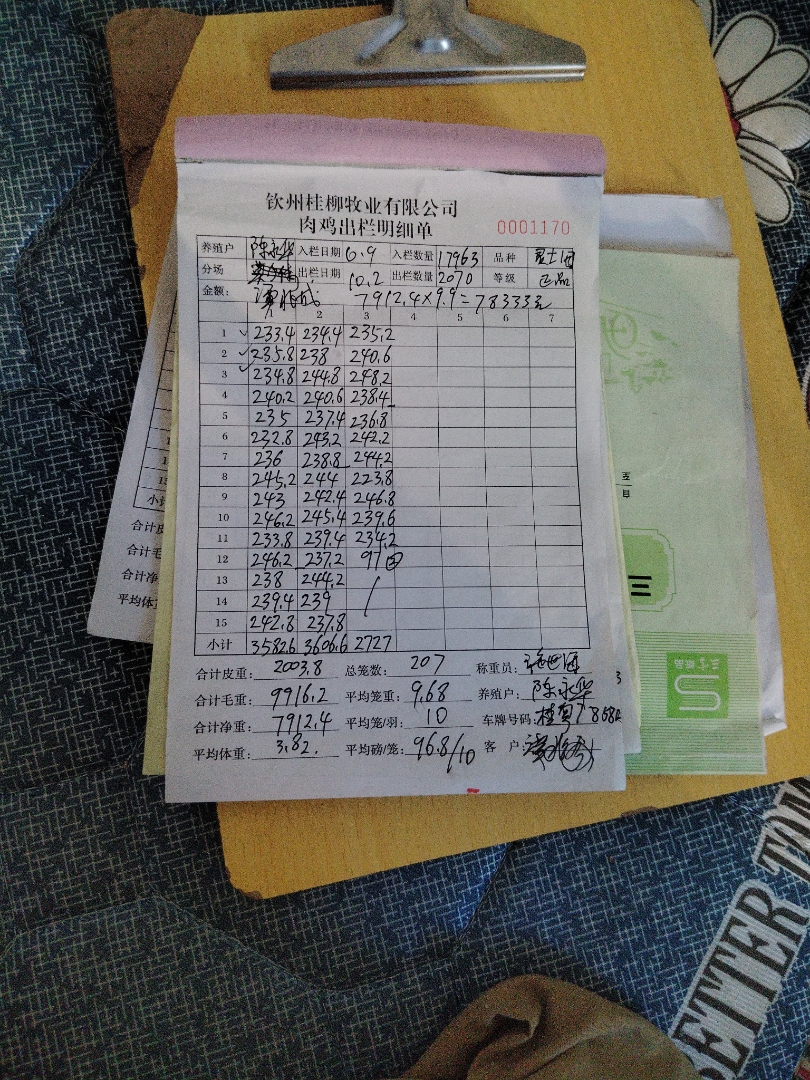 钦州桂柳牧业有限公司
肉鸡出栏明细单
0001170
养殖户 陈永华 入栏日期 6.9 入栏数量 17963 品种
分场 出栏日期 10.2 出栏数量 2070 等级 正品
金额: 7912.4×9.9=78333元
2 3 4 5 6 7
1 233.4 234.4 235.2
2 235.8 238 240.6
3 234.8 244.8 248.2
4 240.2 240.6 238.4
5 235 237.4 236.8
6 232.8 243.2 242.2
7 236 238.8 244.2
8 245.2 244 223.8
9 243 242.4 246.8
10 246.2 245.4 239.6
11 233.8 239.4 234.2
12 246.2 237.2 97
13 238 244.2
14 239.4 239
15 242.8 237.8
小计 3582.6 3606.6 2727
合计皮重: 2003.8 总笼数: 207 称重员:
合计毛重: 9916.2 平均笼重: 9.68 养殖户: 陈永华
合计净重: 7912.4 平均笼/羽: 10 车牌号码:
平均体重: 3.82. 平均磅/笼: 96.8/10 客 户:
小计
合计皮
合计毛
合计净
平均体
至
自
三
BETTER